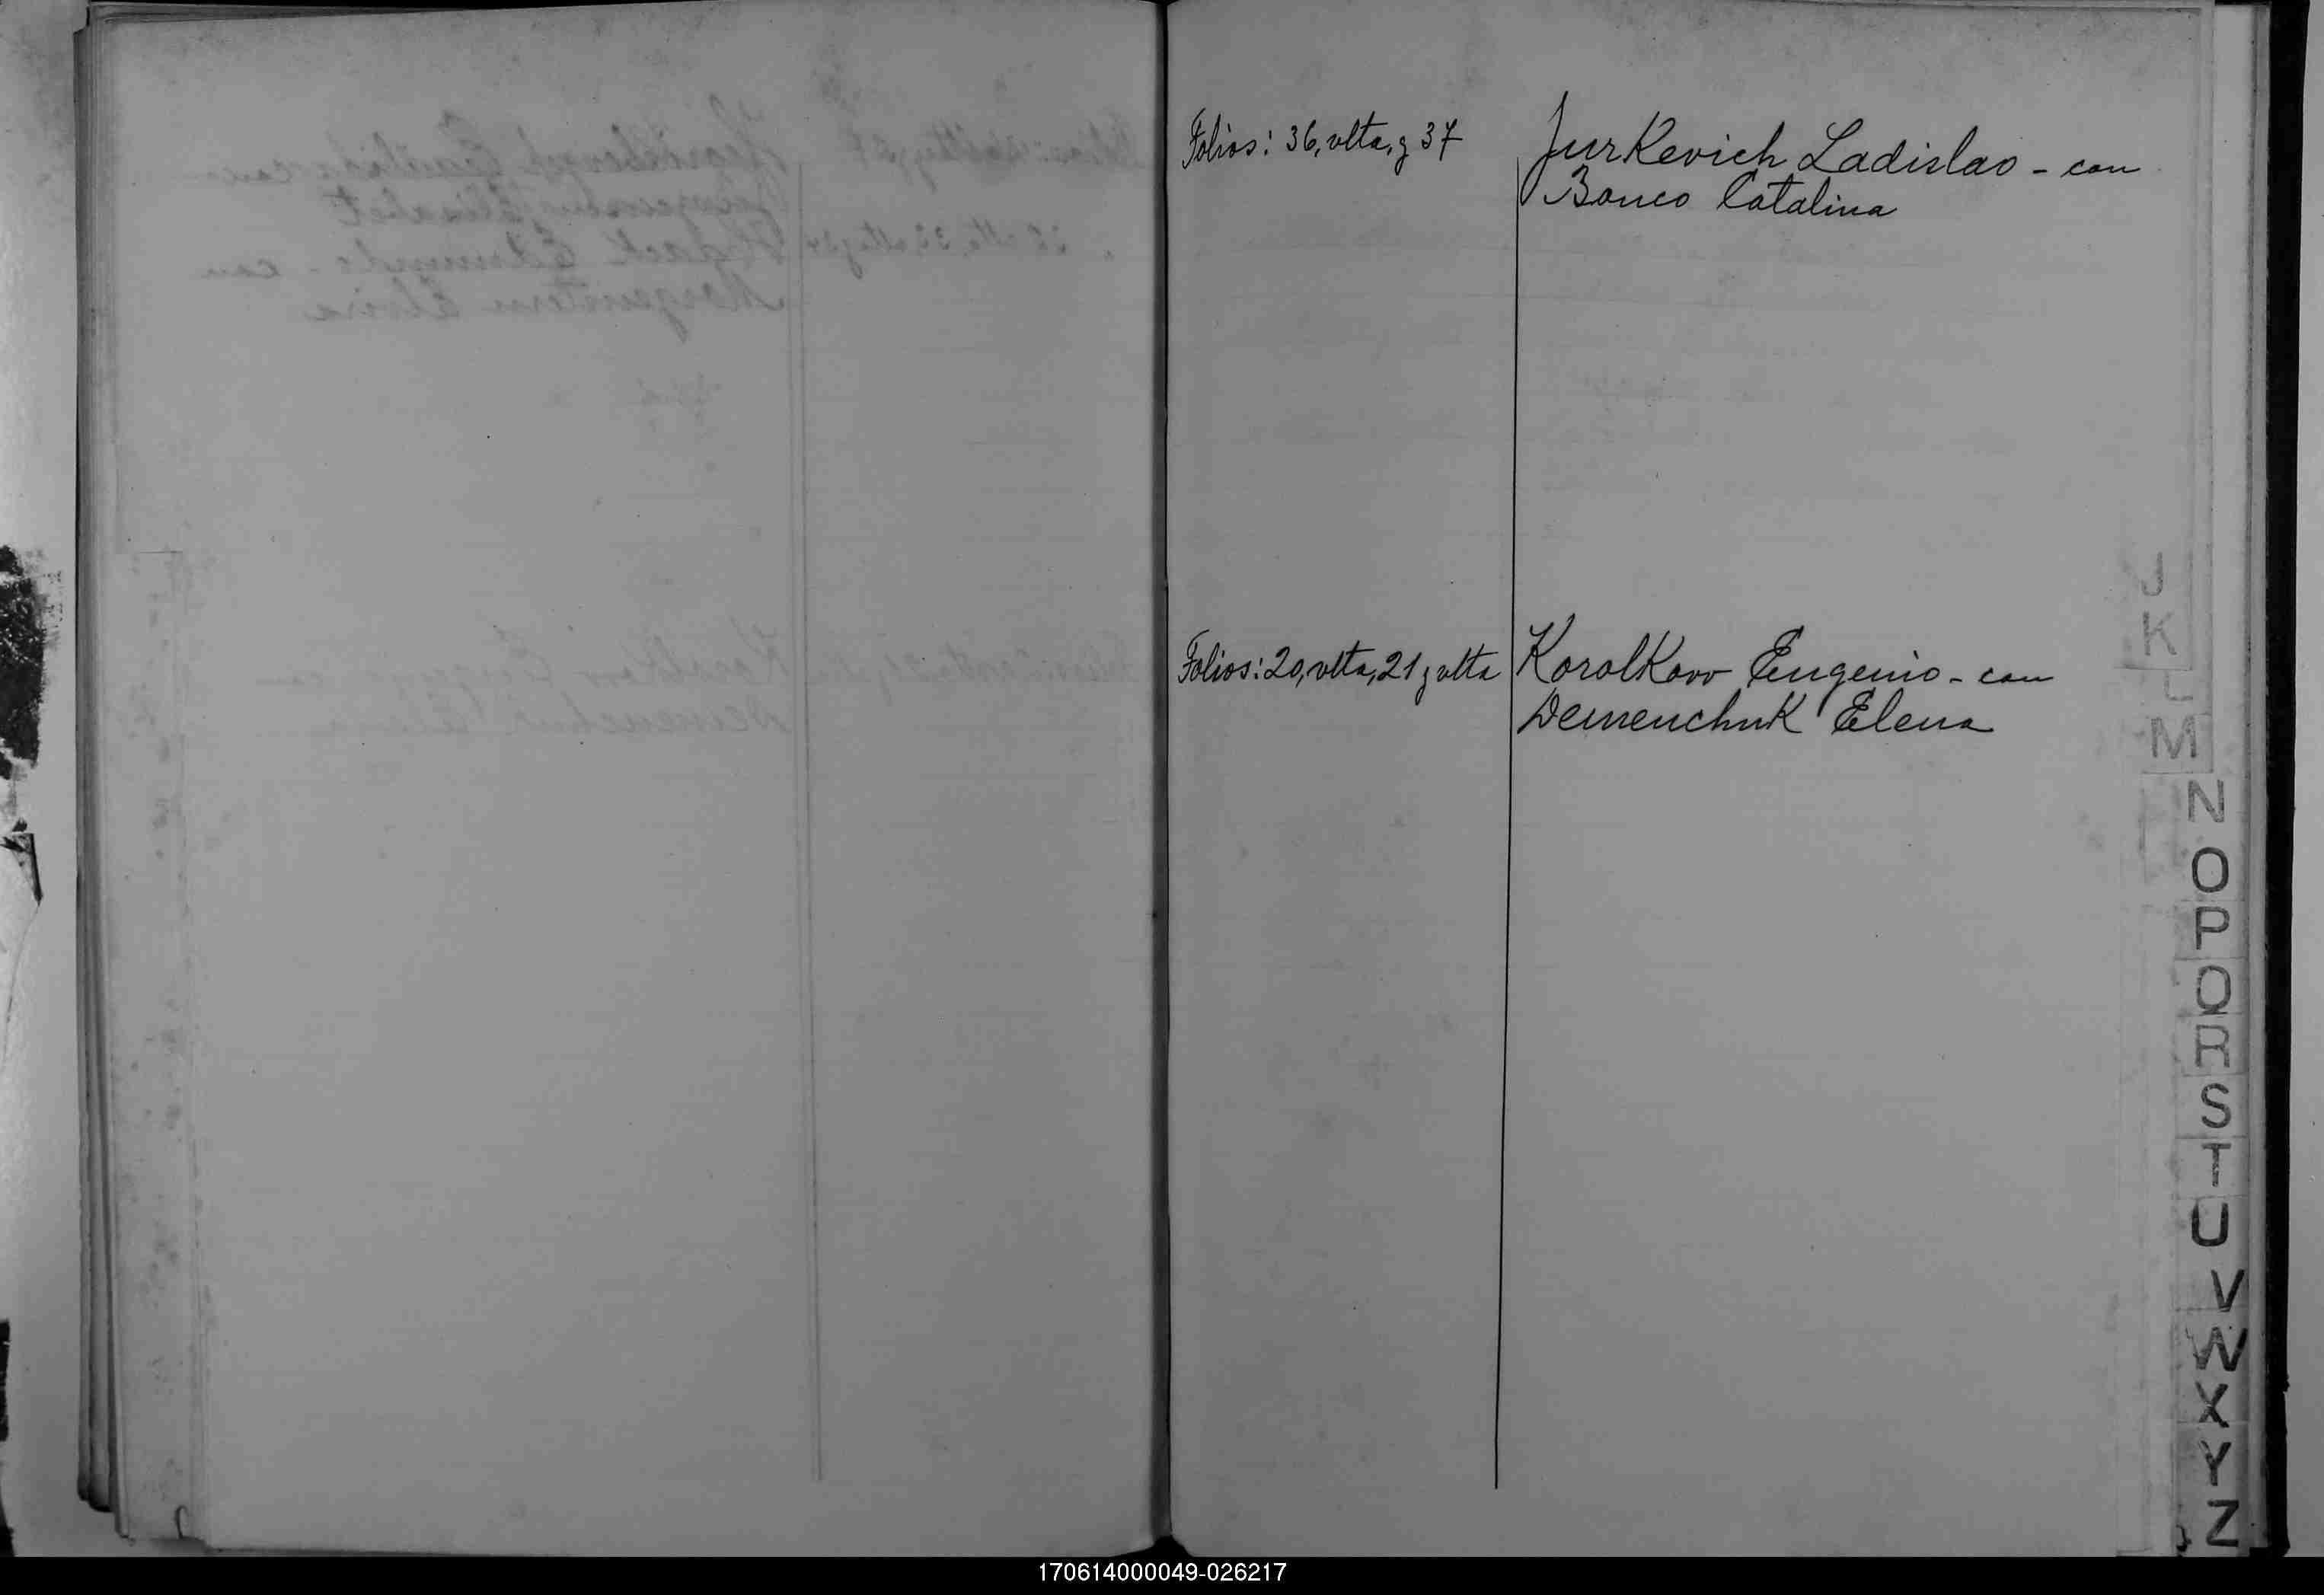 Folios: 36, vlta, y 37
JurKevich Ladislao - con
Banco Catalina
Folios: 20, vlta, 21 y vlta
KorolKow Eugenio - con
DemenchuK Elena
J
K
L
M
N
O
P
Q
R
S
T
U
V
W
X
Y
Z
170614000049-026217